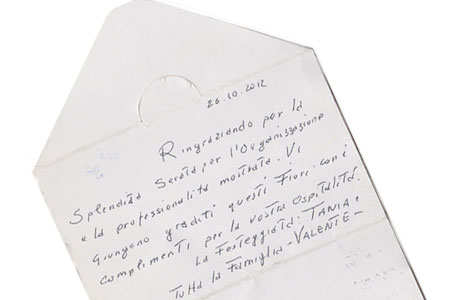 26.10.2012
Ringraziando per la
Splendita Serata per l'Organizzazione
e la professionalità mostrata. Vi
Giungono graditi questi Fiori con i
complimenti per la vostra Ospitalità.
La Festeggiata: TANIA e
Tutta la Famiglia - VALENTE -